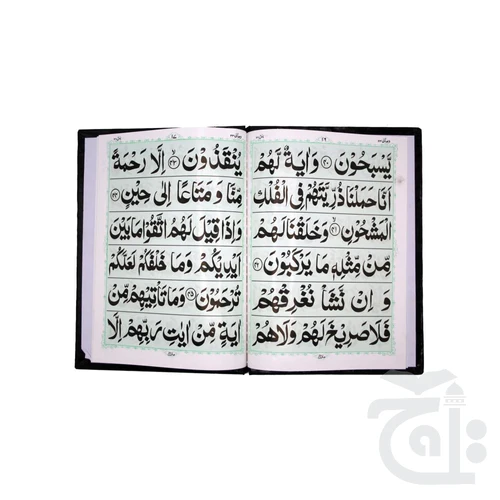 يَسْبَحُوْنَ ﴿۴۰﴾ وَاٰيَةٌ لَّهُمْ
اَنَّا حَمَلْنَا ذُرِّيَّتَهُمْ فِى الْفُلْكِ
الْمَشْحُوْنِ ﴿۴۱﴾ وَخَلَقْنَا لَهُمْ
مِّنْ مِّثْلِهٖ مَا يَرْكَبُوْنَ ﴿۴۲﴾
وَ اِنْ نَّشَاْ نُغْرِقْهُمْ
فَلَا صَرِيْخَ لَهُمْ وَلَا هُمْ
يُنْقَذُوْنَ ﴿۴۳﴾ اِلَّا رَحْمَةً
مِّنَّا وَ مَتَاعًا اِلٰى حِيْنٍ ﴿۴۴﴾
وَاِذَا قِيْلَ لَهُمُ اتَّقُوْا مَا بَيْنَ
اَيْدِيْكُمْ وَمَا خَلْفَكُمْ لَعَلَّكُمْ
تُرْحَمُوْنَ ﴿۴۵﴾ وَمَا تَاْتِيْهِمْ مِّنْ
اٰيَةٍ مِّنْ اٰيٰتِ رَبِّهِمْ اِلَّا